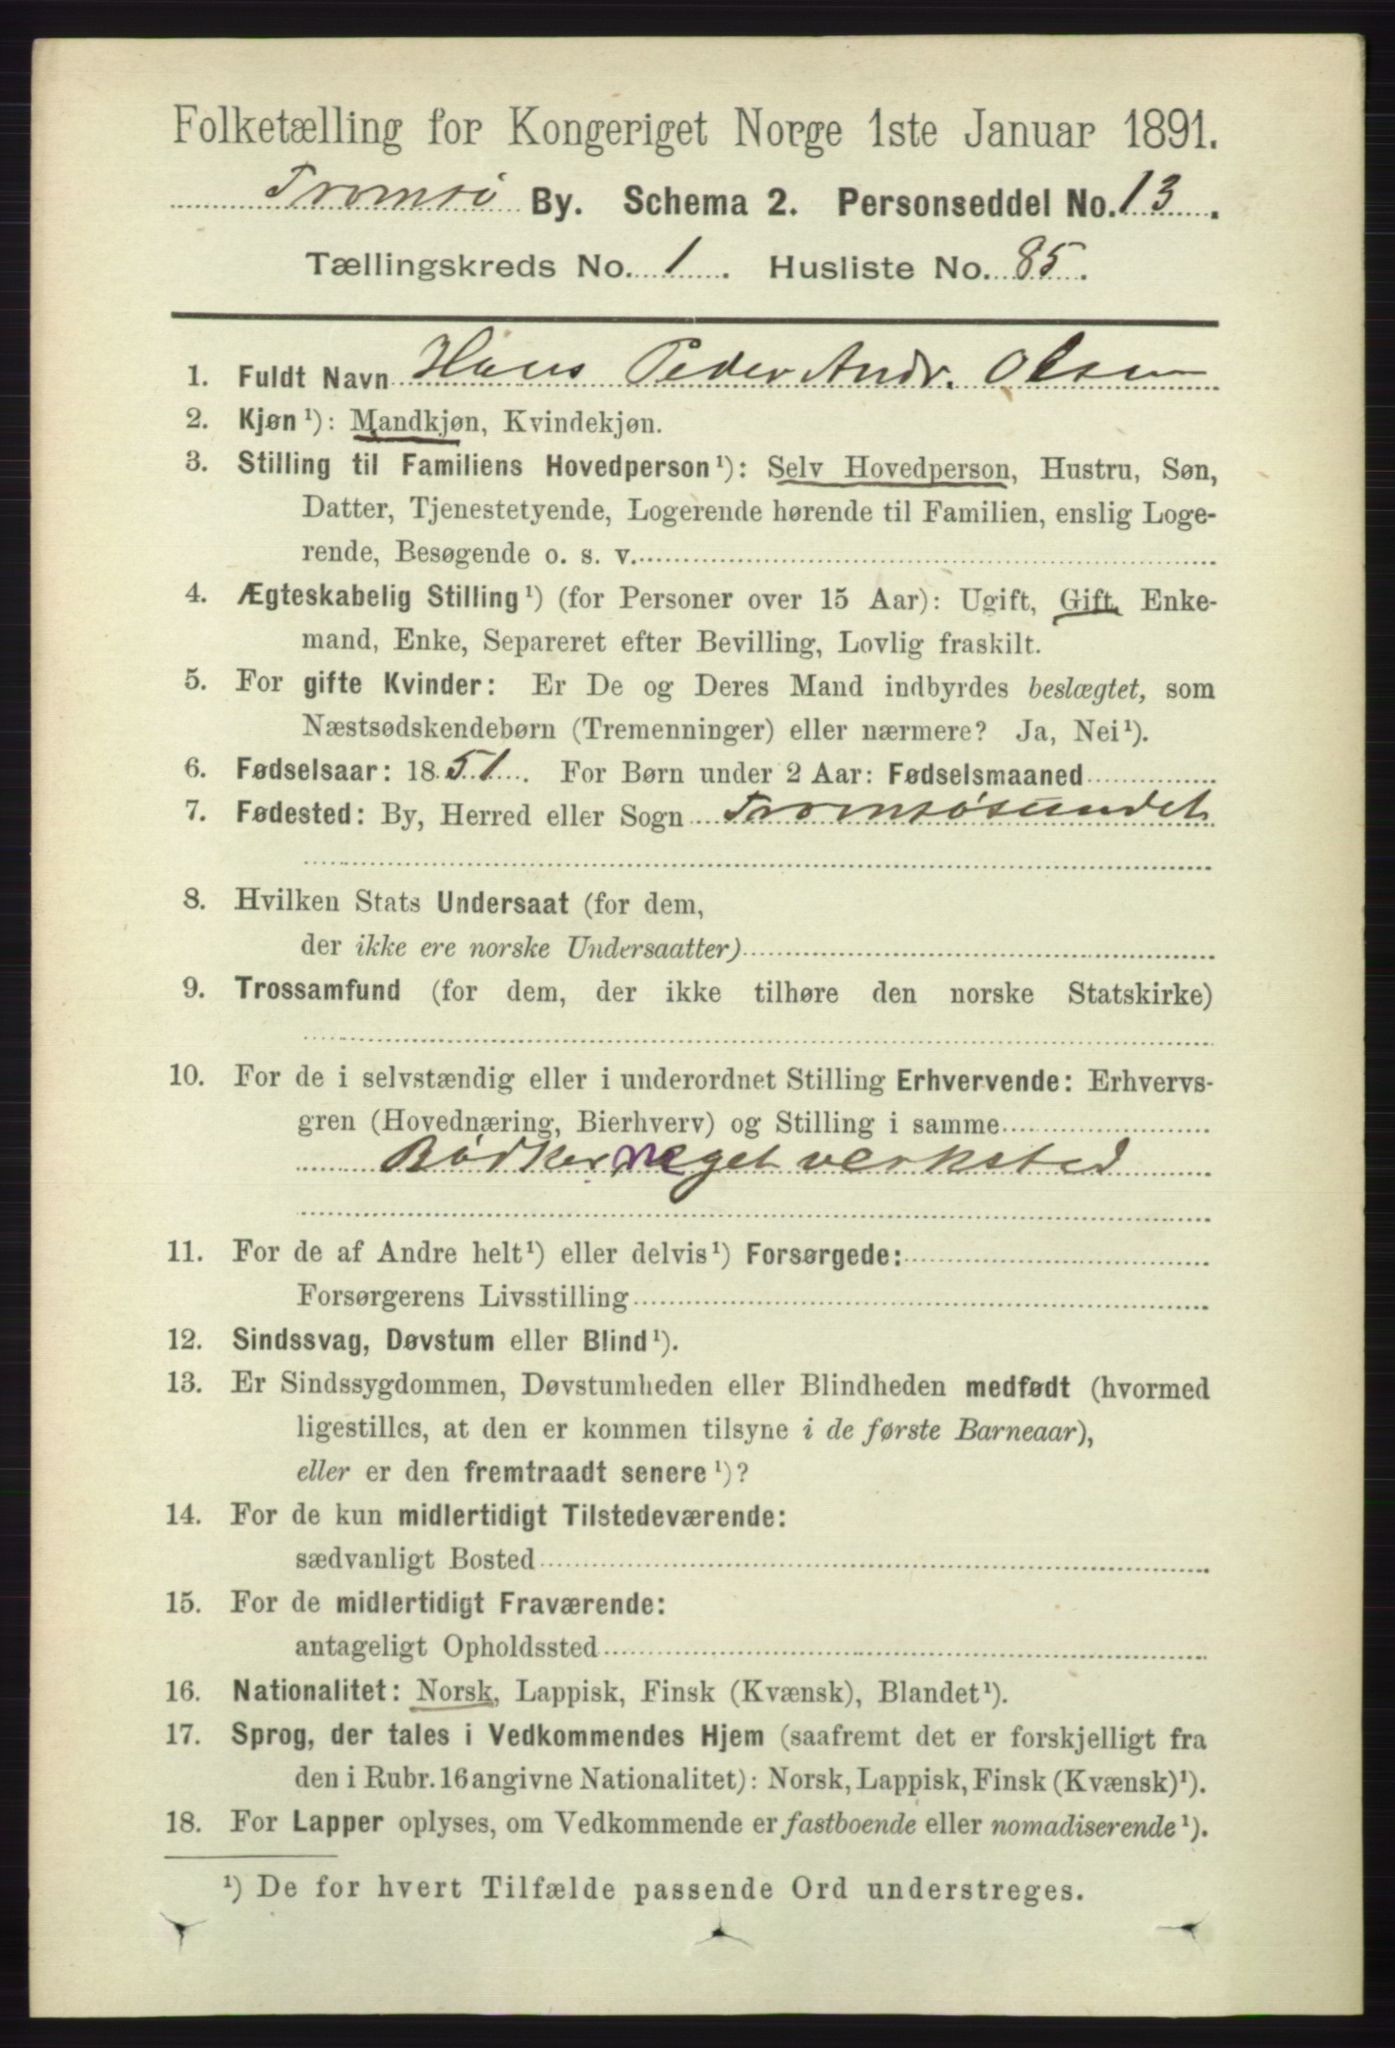 Folketælling for Kongeriget Norge 1ste Januar 1891.
Tromsø By. Schema 2. Personseddel No. 13.
Tællingskreds No. 1. Husliste No. 85.
1. Fuldt Navn Hans Peder Andr. Olsen
2. Kjøn¹): Mandkjøn, Kvindekjøn.
3. Stilling til Familiens Hovedperson¹): Selv Hovedperson, Hustru, Søn,
Datter, Tjenestetyende, Logerende hørende til Familien, enslig Loge-
rende, Besøgende o. s. v.
4. Ægteskabelig Stilling¹) (for Personer over 15 Aar): Ugift, Gift, Enke-
mand, Enke, Separeret efter Bevilling, Lovlig fraskilt.
5. For gifte Kvinder: Er De og Deres Mand indbyrdes beslægtet, som
Næstsødskendebørn (Tremenninger) eller nærmere? Ja, Nei¹).
6. Fødselsaar: 1851. For Børn under 2 Aar: Fødselsmaaned
7. Fødested: By, Herred eller Sogn Tromsøsundet
8. Hvilken Stats Undersaat (for dem,
der ikke ere norske Undersaatter)
9. Trossamfund (for dem, der ikke tilhøre den norske Statskirke)
10. For de i selvstændig eller i underordnet Stilling Erhvervende: Erhvervs-
gren (Hovednæring, Bierhverv) og Stilling i samme
Bødker m eget verksted
11. For de af Andre helt¹) eller delvis¹) Forsørgede:
Forsørgerens Livsstilling
12. Sindssvag, Døvstum eller Blind¹).
13. Er Sindssygdommen, Døvstumheden eller Blindheden medfødt (hvormed
ligestilles, at den er kommen tilsyne i de første Barneaar),
eller er den fremtraadt senere¹)?
14. For de kun midlertidigt Tilstedeværende:
sædvanligt Bosted
15. For de midlertidigt Fraværende:
antageligt Opholdssted
16. Nationalitet: Norsk, Lappisk, Finsk (Kvænsk), Blandet¹).
17. Sprog, der tales i Vedkommendes Hjem (saafremt det er forskjelligt fra
den i Rubr. 16 angivne Nationalitet): Norsk, Lappisk, Finsk (Kvænsk)¹).
18. For Lapper oplyses, om Vedkommende er fastboende eller nomadiserende¹).
¹) De for hvert Tilfælde passende Ord understreges.